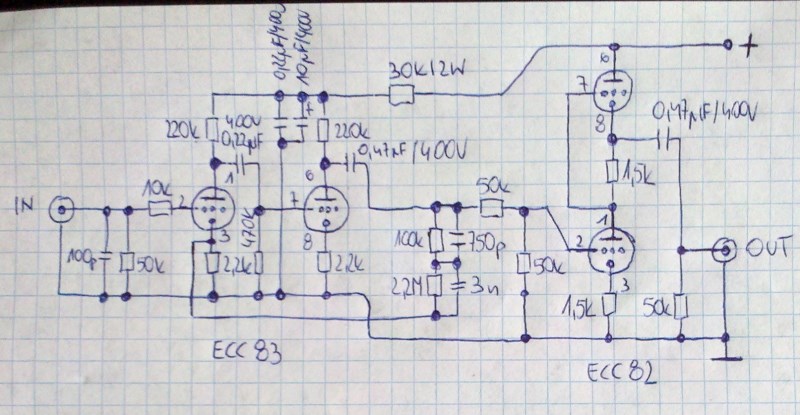 0,22µF/400V
10µF/400V
30k/2W
+
6
7
8
0,47µF/400V
220k
400V
0,22µF
220k
0,47µF/400V
1
6
1,5k
IN
10k
2
470k
7
50k
1
3
8
100k
750p
2
OUT
100p
50k
2,2k
2,2k
2,2M
3n
50k
3
1,5k
50k
ECC 83
ECC 82